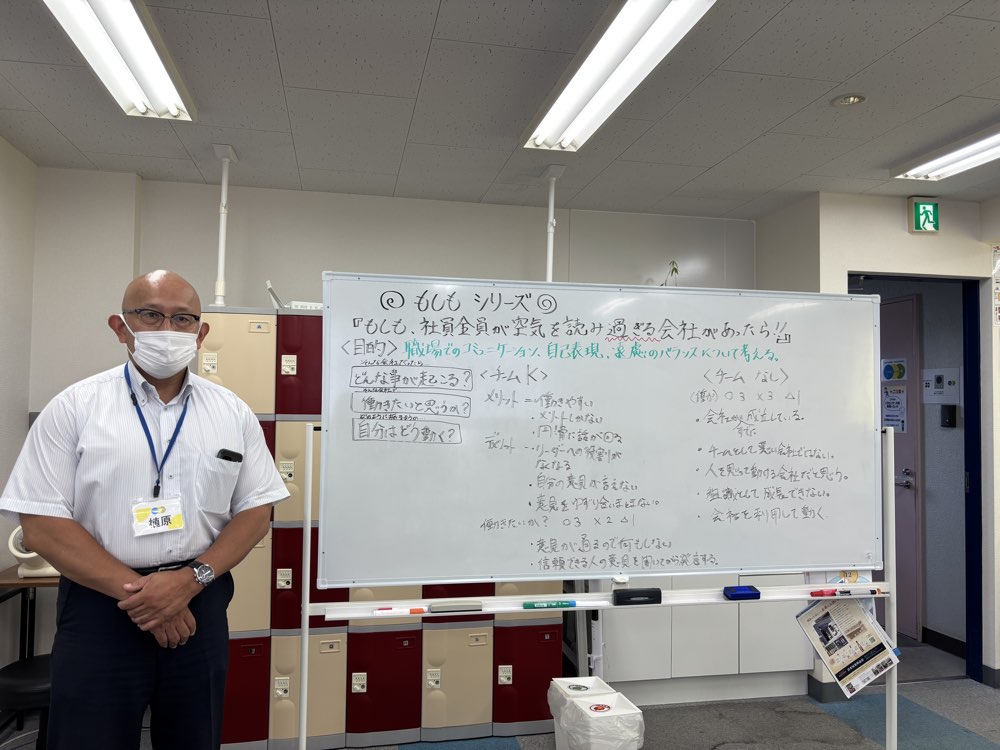 もしも シリーズ
『もしも、社員全員が空気を読み過ぎる会社があったら!!』
<目的> 職場でのコミュニケーション、自己表現、
のバランスについて考える。
そんな会社だったら
どんな事が起こる?
そんな会社で
働きたいと思うか?
自分はどう動く?
<チームK>
メリット = 働きやすい
・メリットしかない
・円滑に話が
デメリット …リーダーへの役割が
なくなる
・自分の意見が言えない
・意見をゆずり合いまとまらない。
働きたいか? ○3 ×2 △1
・意見が通るので何もしない
・信頼できる人の意見を聞いてから発言する。
<チーム なし>
(働か) ○3 ×3 △1
・会社が成立している。
・チームとして悪い会社ではない。
・人を思って動ける会社だと思う。
・組織として成長できない。
・会社を利用して動く
植原